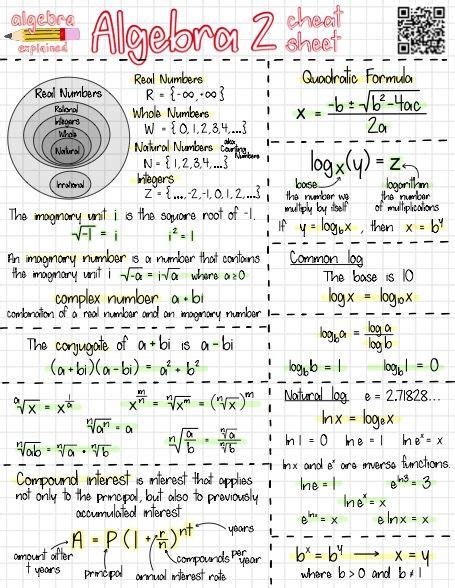 algebra
explained
Algebra 2 cheat
sheet
Real Numbers
Rational
Integers
Whole
Natural
Irrational
Real Numbers
R = {-∞, +∞}
Whole Numbers
W = {0, 1, 2, 3, 4, ...}
Natural Numbers aka counting numbers
N = {1, 2, 3, 4, ...}
Integers
Z = {..., -2, -1, 0, 1, 2, ...}
The imaginary unit i is the square root of -1.
√-1 = i    i² = 1
An imaginary number is a number that contains
the imaginary unit i  √-a = i√a  where a ≥ 0
complex number  a + bi
combination of a real number and an imaginary number
The conjugate of a + bi is a - bi
(a + bi)(a - bi) = a² + b²
ᵃ√x = x^(1/a)    x^(m/n) = ⁿ√x^m = (ⁿ√x)^m
ⁿ√aⁿ = a
ⁿ√ab = ⁿ√a · ⁿ√b    ⁿ√(a/b) = ⁿ√a / ⁿ√b
Compound interest is interest that applies
not only to the principal, but also to previously
accumulated interest
A = P(1 + r/n)^nt
years
amount after t years
principal
annual interest rate
compounds per year
Quadratic Formula
x = (-b ± √(b² - 4ac)) / 2a
logₓ(y) = z
base
the number we
multiply by itself
logarithm
the number
of multiplications
If y = log_b x, then x = b^y
Common log
The base is 10
log x = log₁₀ x
log_b a = log a / log b
log_b b = 1    log_b 1 = 0
Natural log  e = 2.71828...
ln x = logₑ x
ln 1 = 0  ln e = 1  ln eˣ = x
ln x and eˣ are inverse functions.
ln e = 1    e^(ln 3) = 3
ln eˣ = x
e^(ln x) = x    e ln x = x
bˣ = b^y → x = y
where b > 0 and b ≠ 1